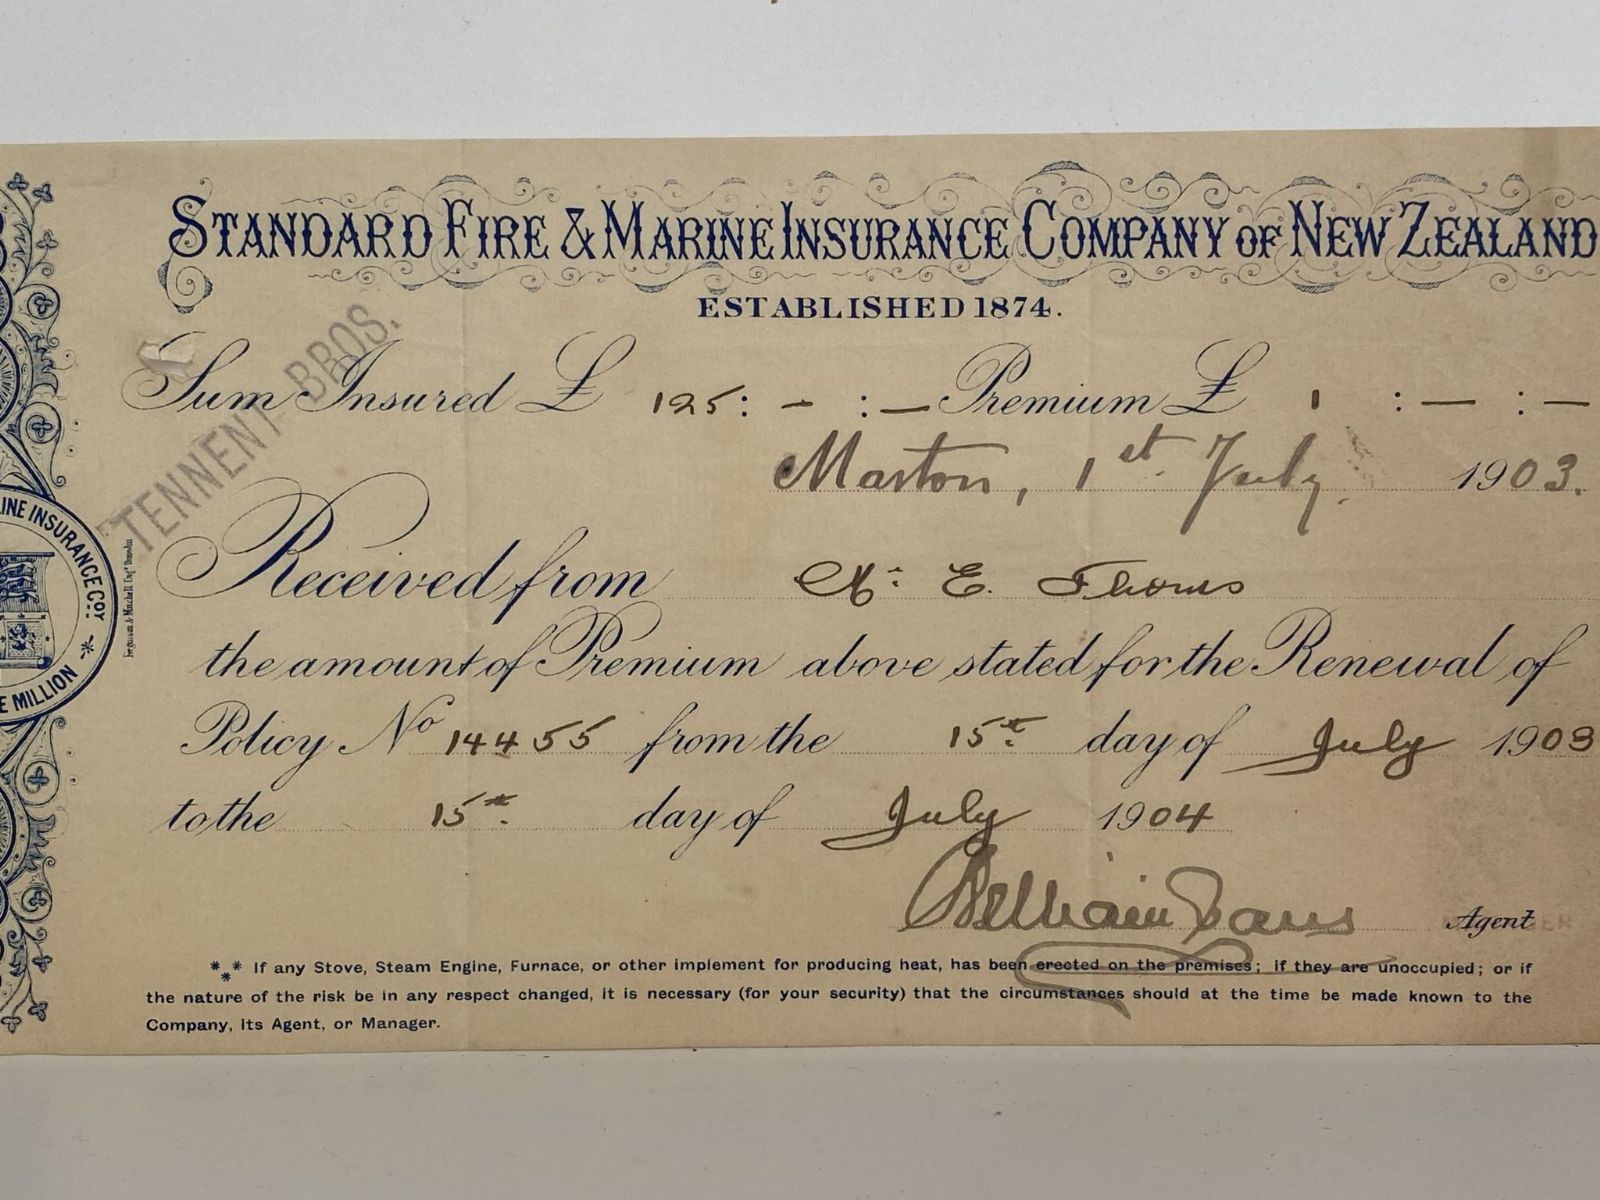 STANDARD FIRE & MARINE INSURANCE COMPANY OF NEW ZEALAND
ESTABLISHED 1874.
TENNENT BROS.
Sum Insured £ 125 : – : — Premium £ 1 : — : —
Marton, 1st July 1903.
Received from Mr. E. Thoms
the amount of Premium above stated for the Renewal of
Policy No 14455 from the 15th day of July 1903
to the 15th day of July 1904
William Agent
⁂ If any Stove, Steam Engine, Furnace, or other implement for producing heat, has been erected on the premises; if they are unoccupied; or if
the nature of the risk be in any respect changed, it is necessary (for your security) that the circumstances should at the time be made known to the
Company, its Agent, or Manager.
INE INSURANCE COY
E MILLION
Ferguson & Mitchell, Engrs Dunedin